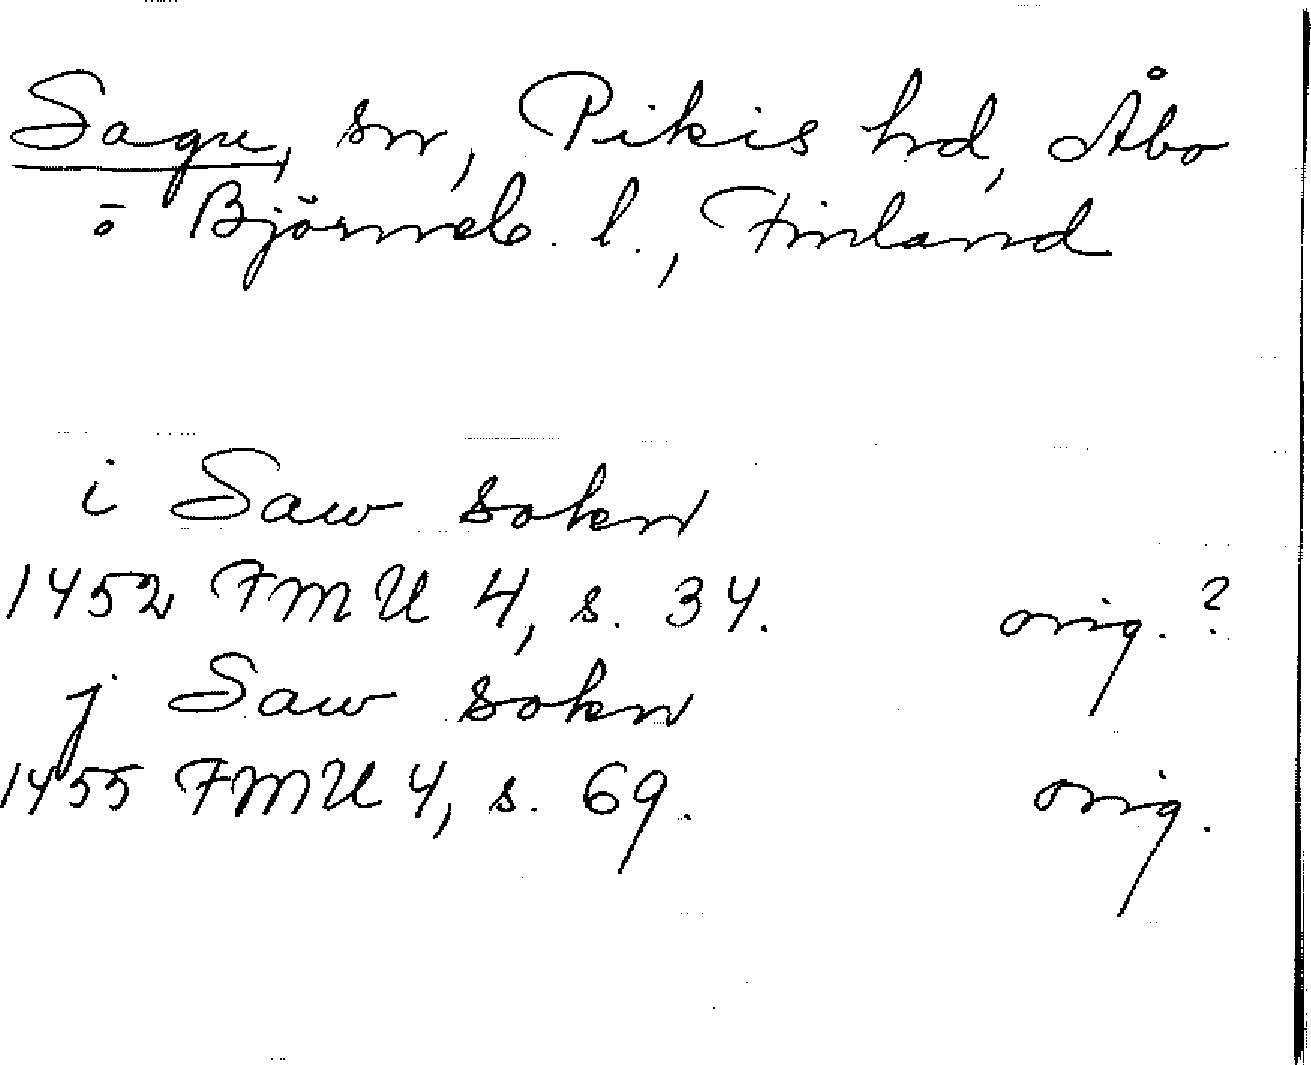 Sagu, sn, Pikis hd, Åbo
o Björneb. l., Finland
i Saw sokn
1452 FMU 4, s. 34. orig. ?
j Saw sokn
1455 FMU 4, s. 69. orig.